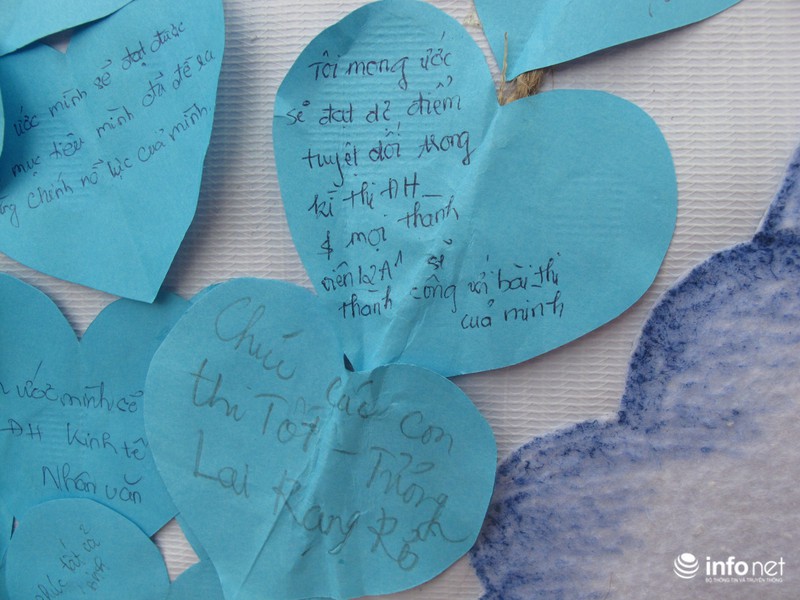 ước mình sẽ đạt được
mục tiêu mình đã đề ra
chính nổ lực của mình
Tôi mong ước
sẽ đạt đ² điểm
tuyệt đối trong
kì thi ĐH_
& mọi thành
viên 12A1 sẽ
thành công với bài thi
của mình
Chúc các con
thi Tốt - Tương
Lai Rạng Rỡ
ước mình có
ĐH Kinh tế
Nhân văn
infonet
BỘ THÔNG TIN VÀ TRUYỀN THÔNG